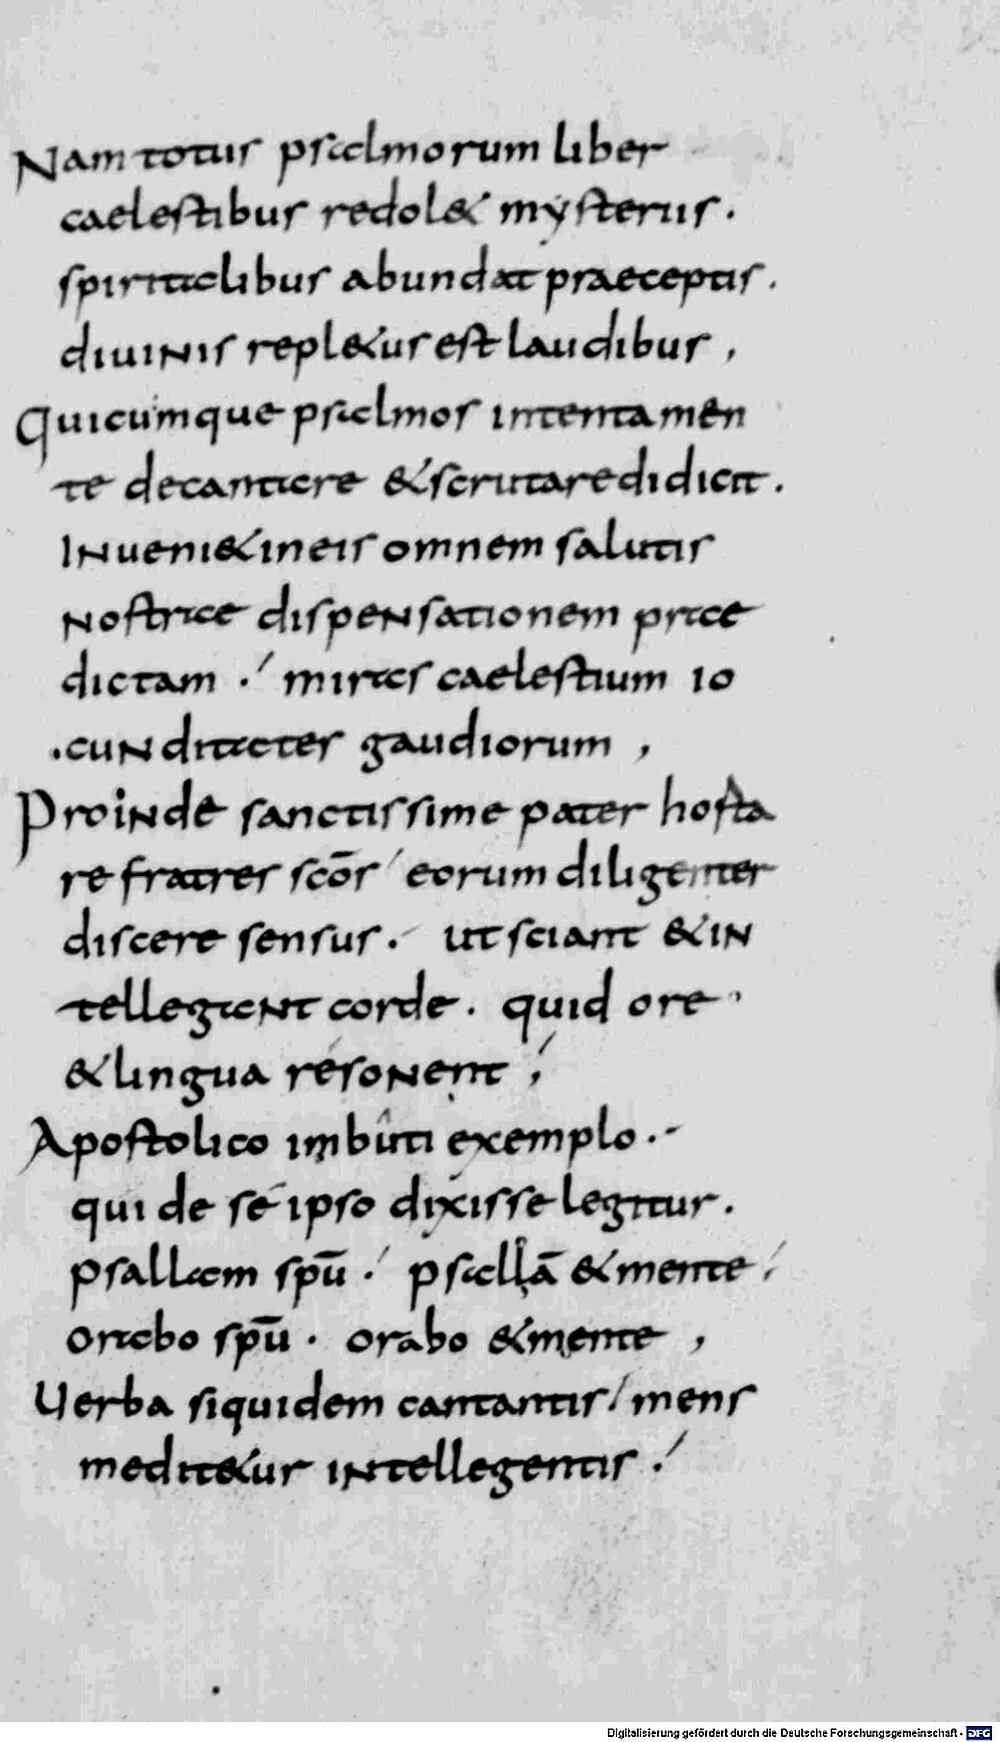 Nam totus psalmorum liber
caelestibus redol& mysteriis.
spiritalibus abundat praeceptis.
diuinis repl&us est laudibus,
Quicumque psalmos intenta men
te decantare & scrutare didicit.
Inueni& in eis omnem salutis
nostrae dispensationem prae
dictam. miras caelestium io
cunditates gaudiorum,
Proinde sanctissime pater horta
re fratres scōs eorum diligenter
discere sensus. ut sciant & in
tellegant corde. quid ore
& lingua resonent;
Apostolico imbuti exemplo.
qui de se ipso dixisse legitur.
psallam spū. psallā & mente
orabo spū. orabo & mente,
Uerba siquidem cantantis/ mens
medit&ur intellegentis.
Digitalisierung gefördert durch die Deutsche Forschungsgemeinschaft - DFG